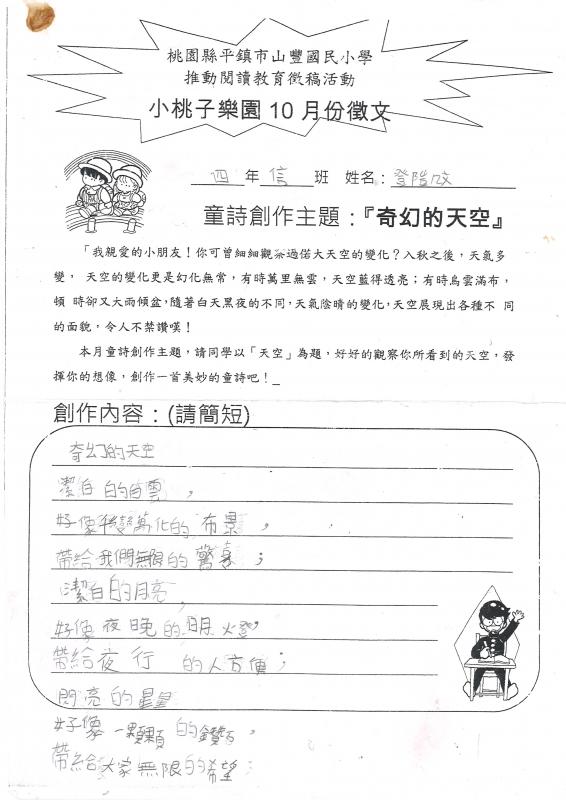 桃園縣平鎮市山豐國民小學
推動閱讀教育徵稿活動
小桃子樂園 10 月份徵文
四 年 信 班 姓名：登階
童詩創作主題：『奇幻的天空』
「我親愛的小朋友！你可曾細細觀察過偌大天空的變化？入秋之後，天氣多
變， 天空的變化更是幻化無常，有時萬里無雲，天空藍得透亮；有時烏雲滿布，
頓 時卻又大雨傾盆，隨著白天黑夜的不同，天氣陰晴的變化，天空展現出各種不 同
的面貌，令人不禁讚嘆！
本月童詩創作主題，請同學以「天空」為題，好好的觀察你所看到的天空，發
揮你的想像，創作一首美妙的童詩吧！_
創作內容：(請簡短)
奇幻的天空
潔白的白雲，
好像千變萬化的布景，
帶給我們無限的驚喜；
潔白的月亮，
好像夜晚的明火燈，
帶給夜行 的人方便；
閃亮的星星
好像一顆顆的鑽石，
帶給大家無限的希望